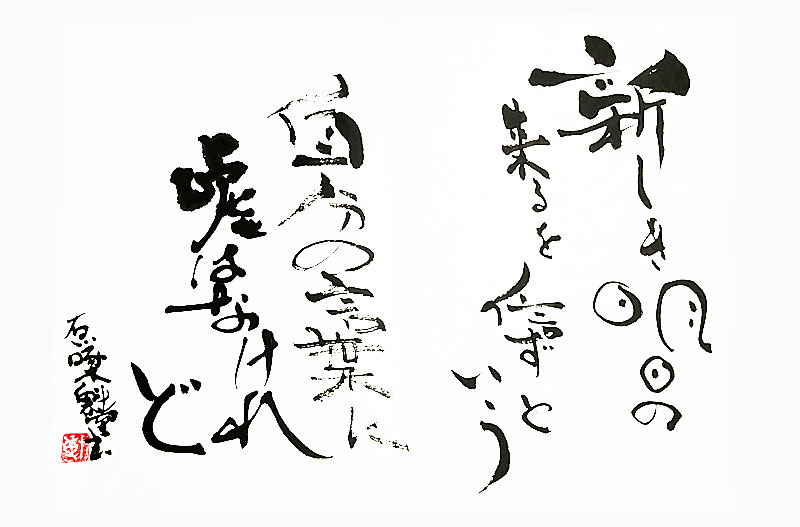 新しき明日の
来るを信ずという
自分の言葉に
嘘はなけれど
石川啄木